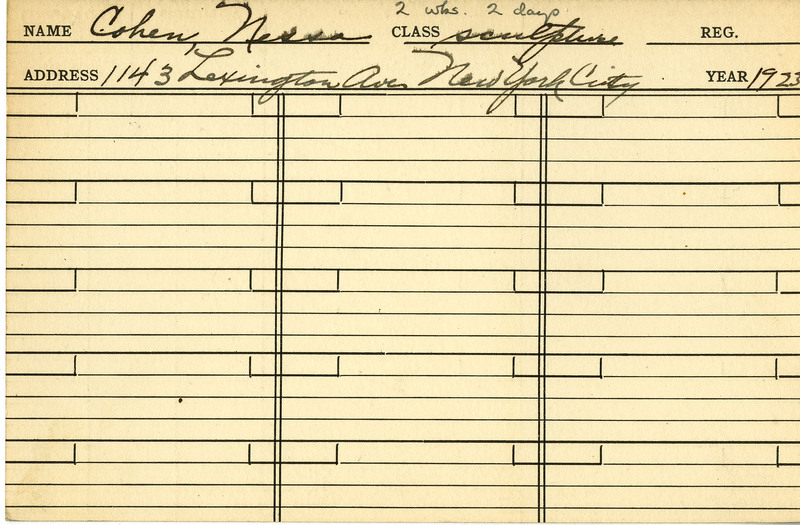 2 wks. 2 days
NAME Cohen, Nessa CLASS sculpture REG.
ADDRESS 1143 Lexington Ave. New York City YEAR 1923